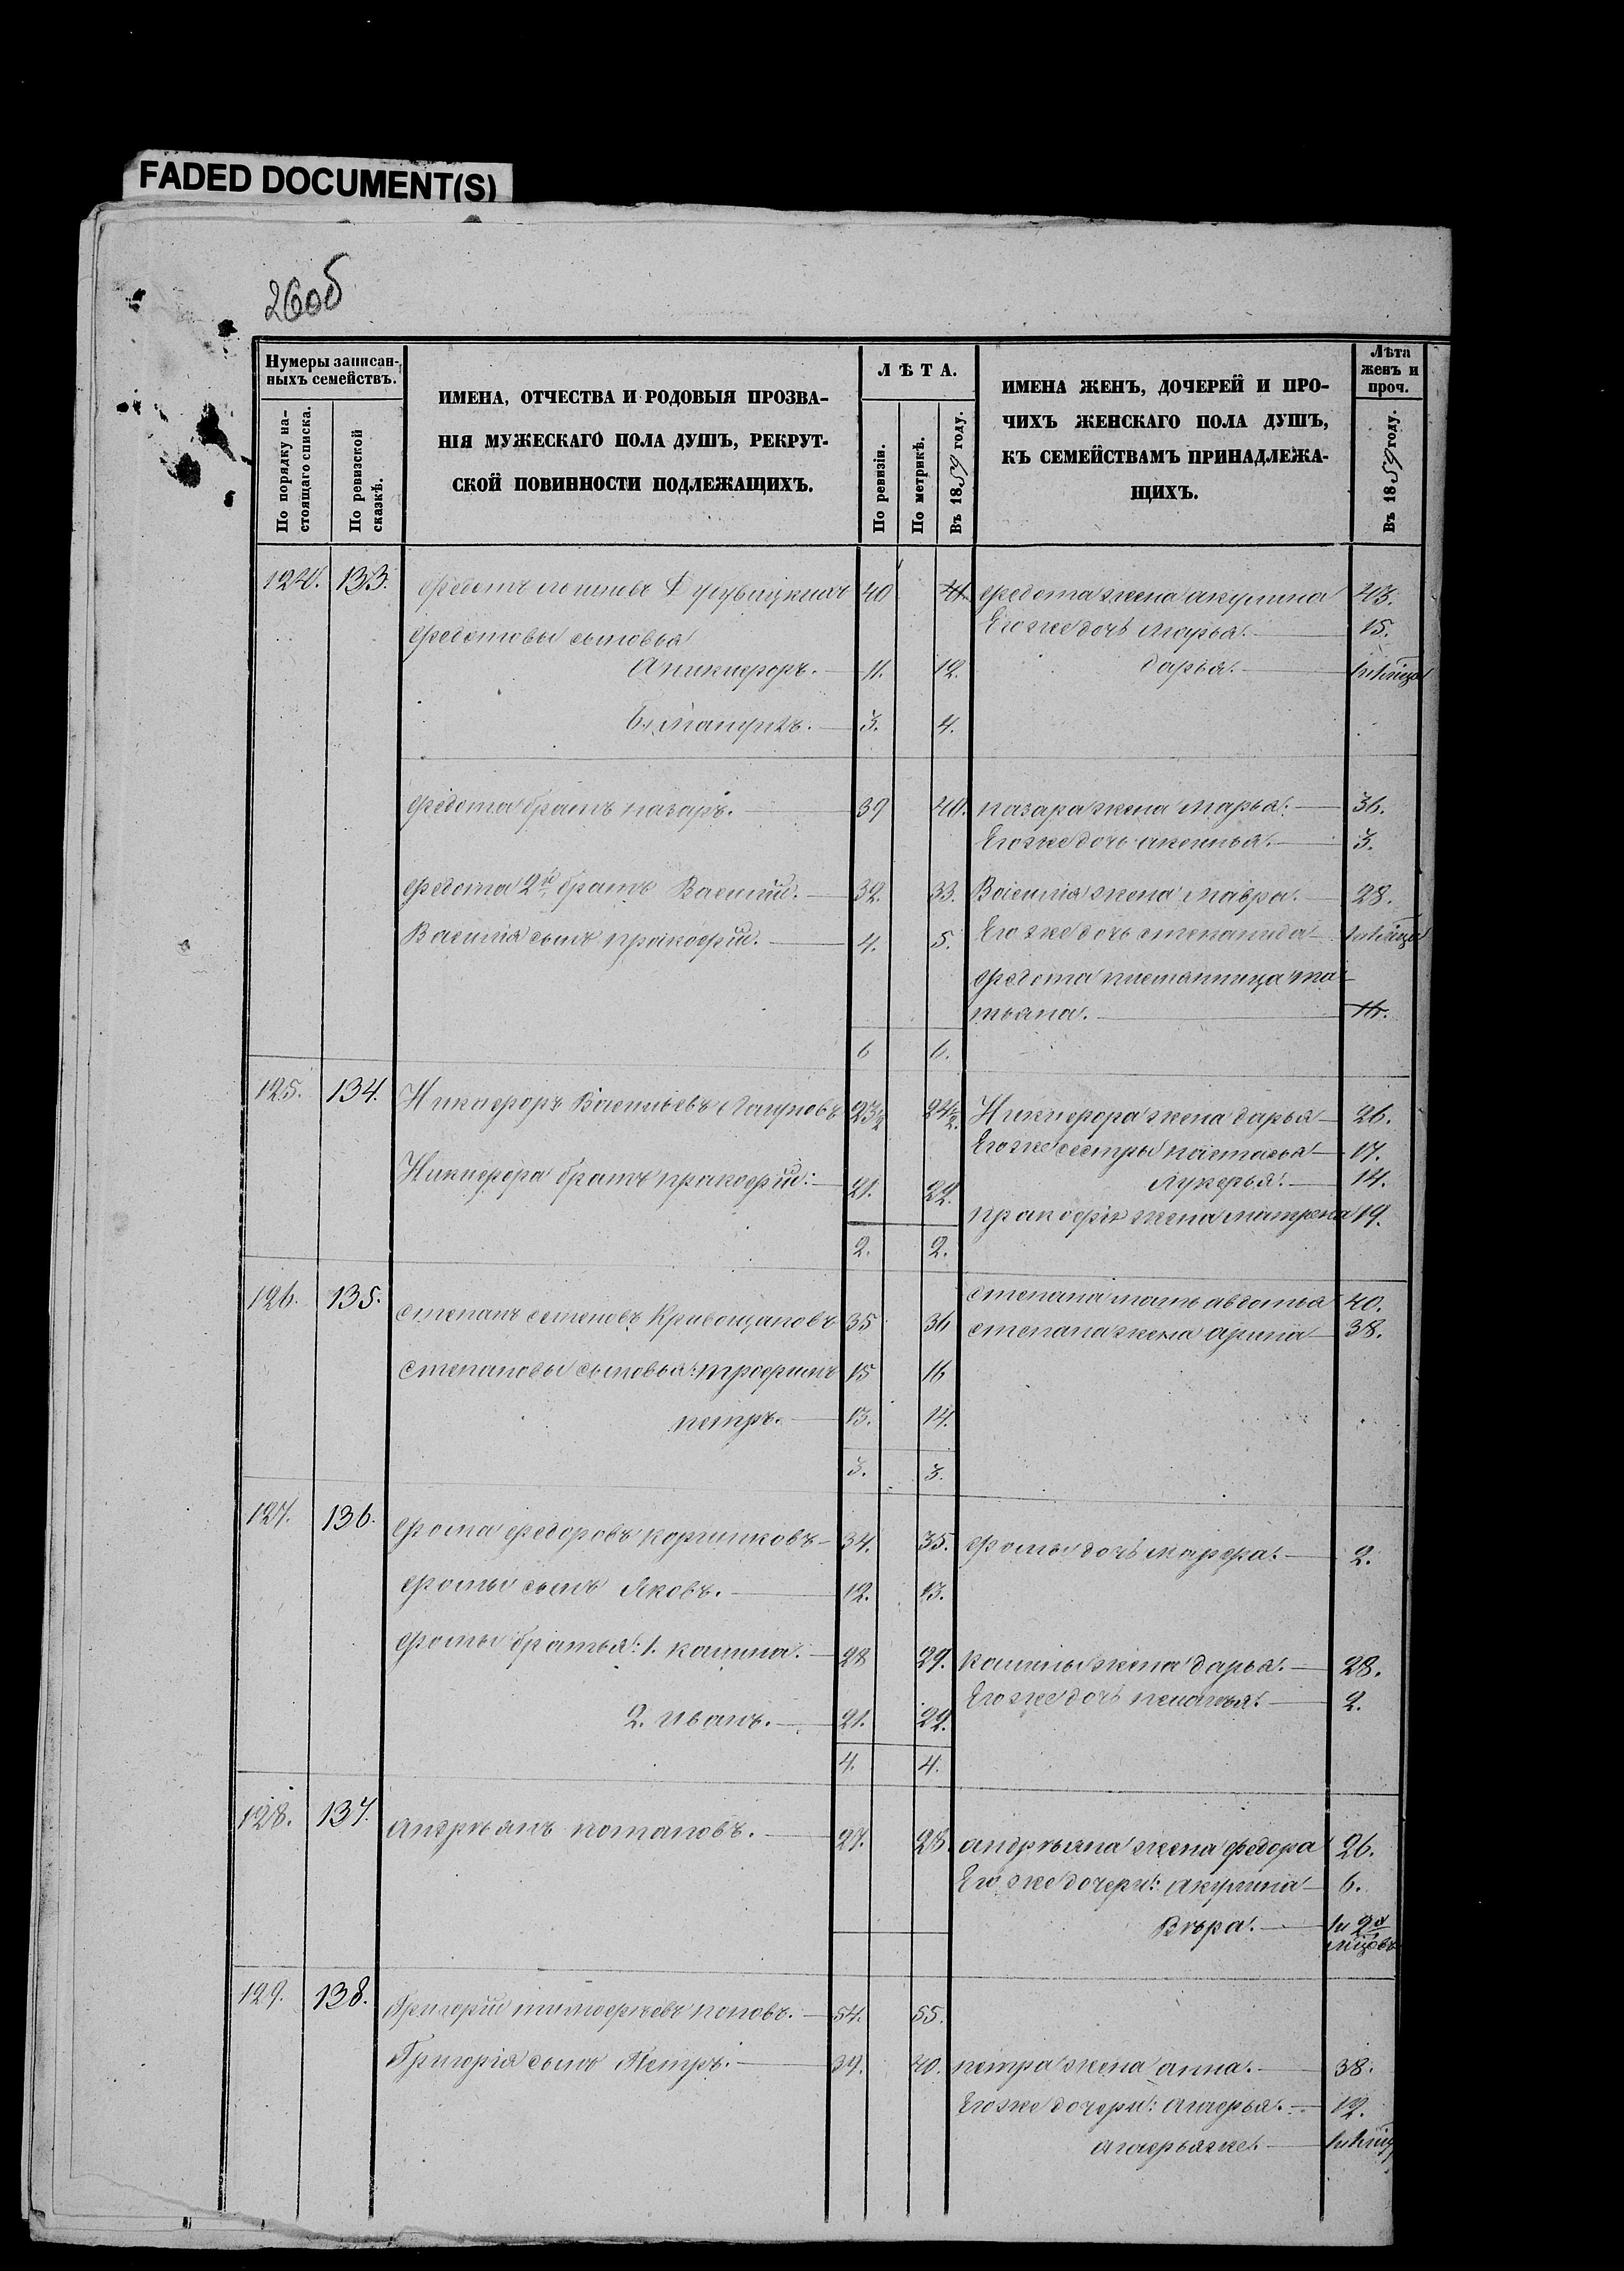 FADED DOCUMENT(S)
26об
Нумеры записан-
ныхъ семействъ.
По порядку на-
стоящаго списка.
По ревизской
сказкѣ.
ИМЕНА, ОТЧЕСТВА И РОДОВЫЯ ПРОЗВА-
НІЯ МУЖЕСКАГО ПОЛА ДУШЪ, РЕКРУТ-
СКОЙ ПОВИННОСТИ ПОДЛЕЖАЩИХЪ.
ЛѢТА.
По ревизіи.
По метрикѣ.
Въ 1859 году.
ИМЕНА ЖЕНЪ, ДОЧЕРЕЙ И ПРО-
ЧИХЪ ЖЕНСКАГО ПОЛА ДУШЪ,
КЪ СЕМЕЙСТВАМЪ ПРИНАДЛЕЖА-
ЩИХЪ.
Лѣта
женъ и
проч.
Въ 1859 году.
124. 133. Федотъ 40 41. Федота жена акулина 43.
Федотовы сыновья Его же дочь Марья. 15.
Аникифоръ. 11. 12. дарья.
3. 4.
Федота братъ назаръ. 39 40. назара жена марья. 36.
Его же дочь аксинья. 3.
Федота 2й братъ Василий. 32. 33. Василия жена мавра. 28.
Василия сынъ пракофий. 4. 5. Его же дочь степанида
Федота племянница та-
тьяна. 16.
6 6.
125. 134. Никифоръ Васильевъ 23½ 24½. Никифора жена дарья 26.
Его же сестры настасья 17.
Никифора братъ пракофий. 21. 22. лукерья. 14.
пракофія жена матрена 19.
2. 2.
126. 135. степана мать авдотья 40.
степанъ семеновъ Кривощаповъ 35 36 степана жена арина 38.
степановы сыновья: трофимъ 15 16
петръ. 13. 14.
3. 3.
127. 136. фома федоровъ 34. 35. фомы дочь марфа. 2.
фомы сынъ Яковъ. 12. 13.
фомы братья: 1. калина. 28 29. калины жена дарья. 28.
Его же дочь пелагья. 2.
2. иванъ. 21. 22.
4. 4.
128. 137. андреянъ потаповъ. 27. 28. андреяна жена федора 26.
Его же дочери: акулина 6.
Вѣра.
129. 138. Григорий тимофеевъ поповъ. 54. 55.
Григория сынъ Петръ. 39. 40. петра жена анна. 38.
Его же дочери: агафья. 12.
агафья же.